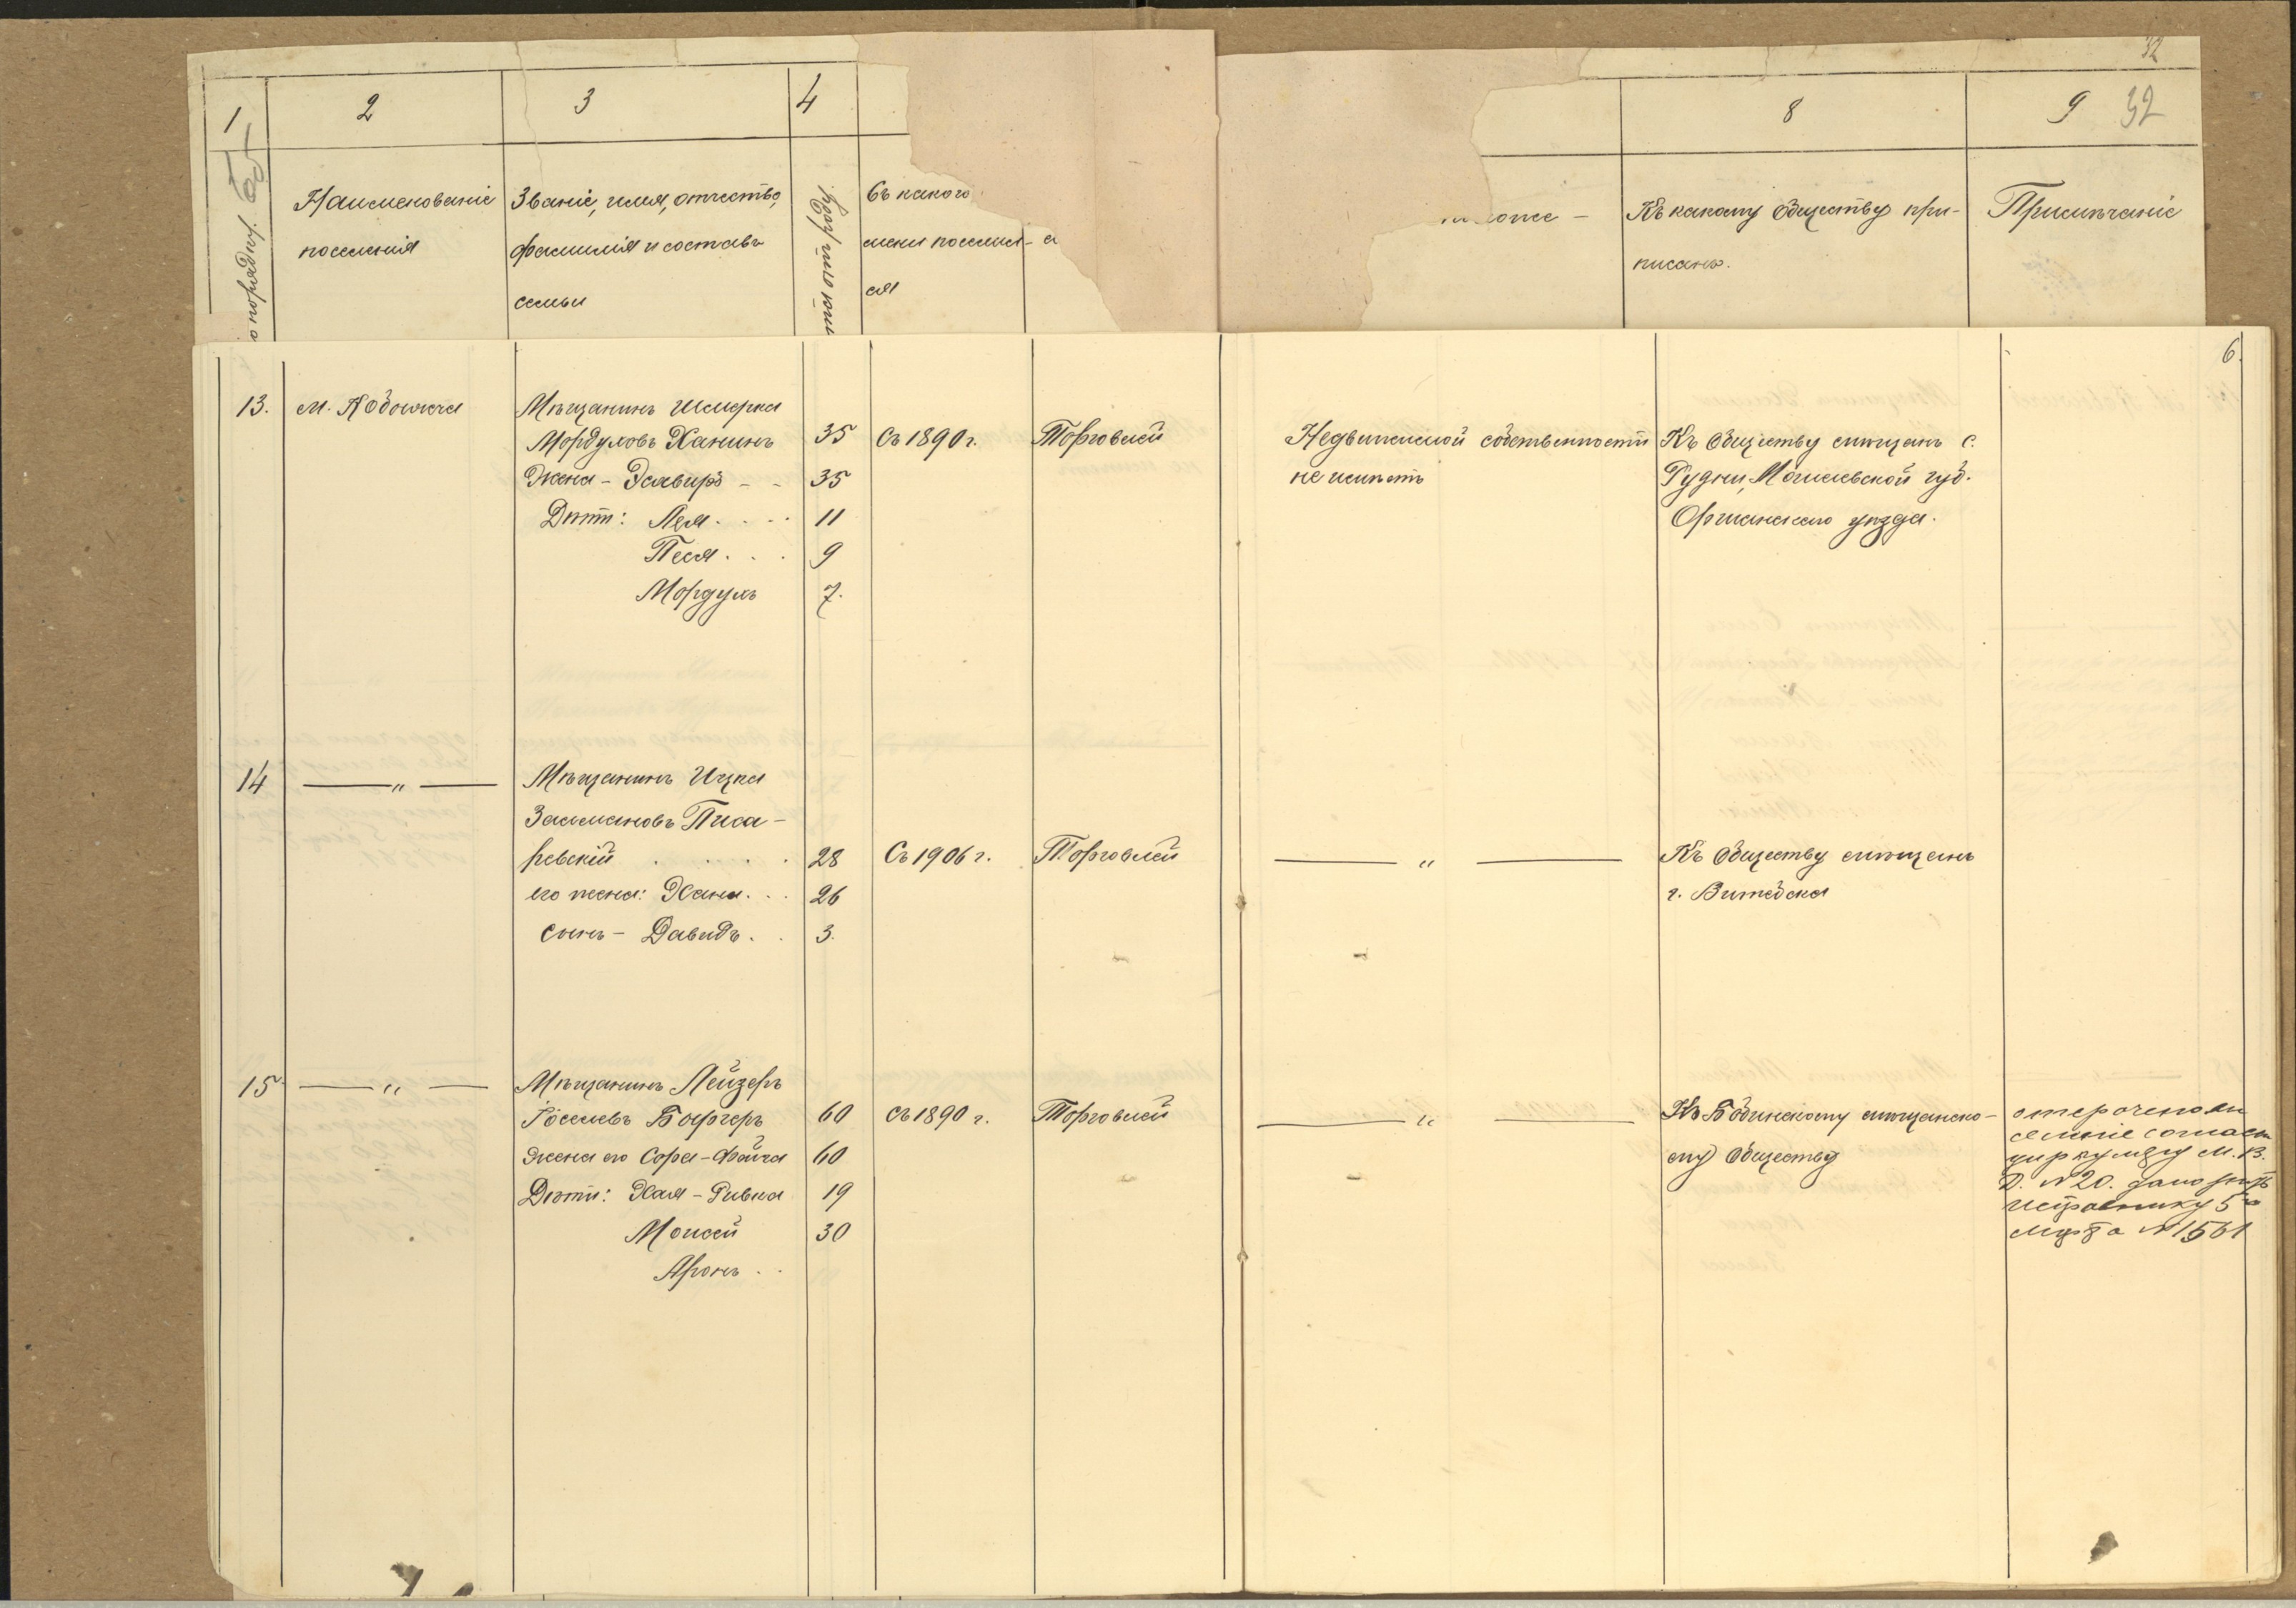 32
1 2 3 4 8 9 32
Наименованіе
поселенія
Званіе, имя, отчество,
фамилія и составъ
семьи
Съ какого
мени поселил-
ся
Къ какому обществу при-
писанъ.
Примѣчаніе
6.
13. м. Кобыляча Мѣщанинъ Шмерка
Мордуховъ Ханинъ 35 Съ 1890 г. Торговлей Недвижимой собственности Къ обществу мѣщанъ с.
Жена - Эльвира - - 35 не имѣетъ Рудни, Могилевской губ.
Дѣти: Лея . . . . 11 Оршанскаго уѣзда.
Песя . . . 9
Мордухъ 7.
14 —— " —— Мѣщанинъ Ицка
Залмановъ Писа-
ревскій . . . . . 28 Съ 1906 г. Торговлей —— " —— Къ обществу мѣщанъ
его жена: Хана . . . 26 г. Витебска
сынъ - Давидъ . . 3.
15 —— " —— Мѣщанинъ Лейзеръ
Іоселевъ Боргеръ 60 съ 1890 г. Торговлей —— " —— Къ мѣщанско-
жена его Сора-Файга 60 му обществу
Дѣти: Хая-Ривка 19
Моисей 30
Аронъ . .
отсрочено вы
селеніе согласн
циркуляру М. В.
Д. № 20. дано
исправнику 5го
марта № 1561